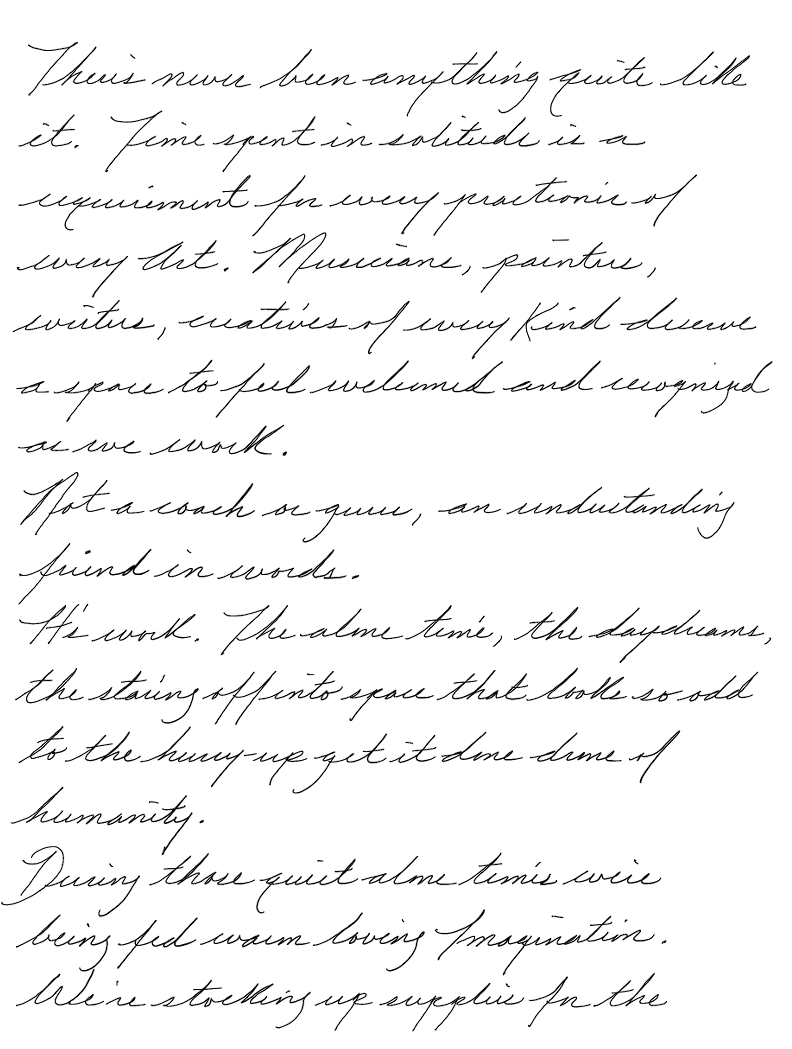 There's never been anything quite like
it. Time spent in solitude is a
requirement for every practioner of
every Art. Musicians, painters,
writers, creatives of every Kind deserve
a space to feel welcomed and recognized
as we work.
Not a coach or guru, an understanding
friend in words.
It's work. The alone time, the daydreams,
the staring off into space that looks so odd
to the hurry-up get it done drone of
humanity.
During those quiet alone times we're
being fed warm loving Imagination.
We're stocking up supplies for the